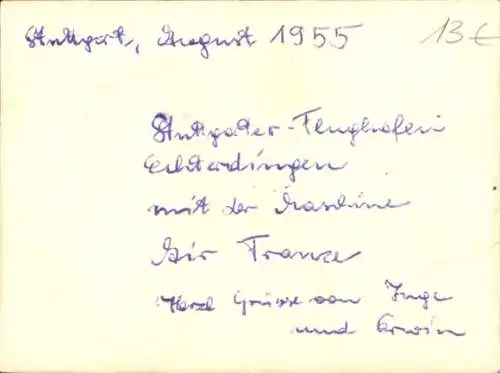 Stuttgart, August 1955
13€
Stuttgarter-Flughafen
Echterdingen
mit der Maschine
Air France
Herzl Grüsse von Inge
und Erwin